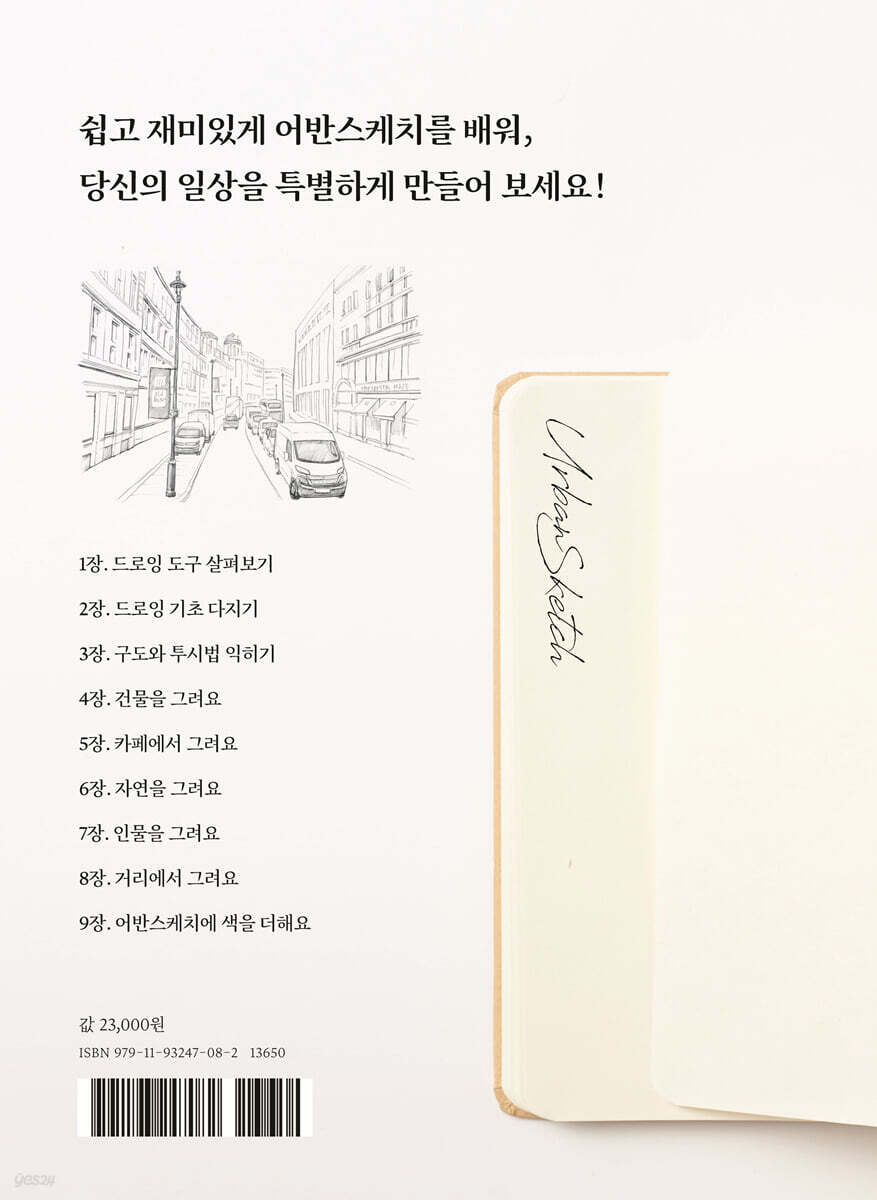 쉽고 재미있게 어반스케치를 배워,
당신의 일상을 특별하게 만들어 보세요!
1장. 드로잉 도구 살펴보기
2장. 드로잉 기초 다지기
3장. 구도와 투시법 익히기
4장. 건물을 그려요
5장. 카페에서 그려요
6장. 자연을 그려요
7장. 인물을 그려요
8장. 거리에서 그려요
9장. 어반스케치에 색을 더해요
값 23,000원
ISBN 979-11-93247-08-2 13650
Urban Sketch
yes24